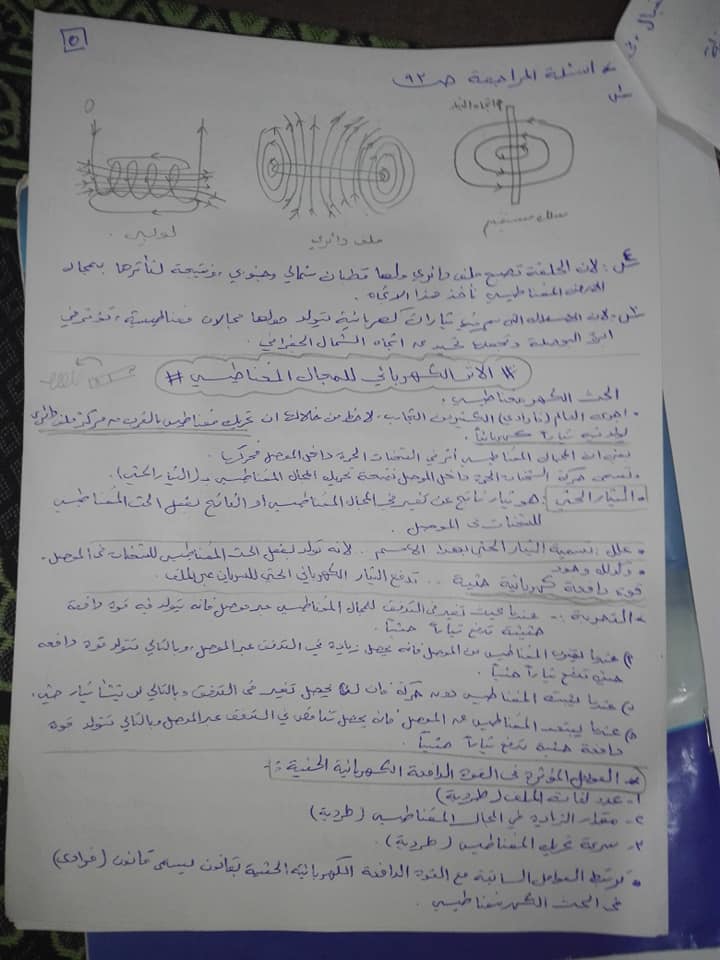 ٥
* اسئلة المراجعة ص ٩٢
س١
اتجاه التيار
سلك مستقيم
ملف دائري
لولبي
س٤: لان الحلقة تصبح ملف دائري ولها قطبان شمالي وجنوبي، ونتيجة لتأثرها بمجال
الارض المغناطيسي تأخذ هذا الاتجاه.
س٦: لان الاسلاك التي تمر بها تيارات كهربائية تتولد حولها مجالات مغناطيسية، تؤثر في
ابرة البوصلة وتجعلها تحيد عن اتجاه الشمال الجغرافي.
# الاثر الكهربائي للمجال المغناطيسي #
الحث الكهرومغناطيسي.
• اجرى العالم (فارادي) الكثير من التجارب، لاحظ من خلالها ان تحريك مغناطيس بالقرب من مركز ملف دائري
يولد فيه تياراً كهربائياً.
يعني ان المجال المغناطيسي أثر في الشحنات الحرة داخل الموصل فحركها.
• تسمى حركة الشحنات الحرة داخل الموصل نتيجة تحريك المجال المغناطيسي بـ (التيار الحثي).
* التيار الحثي: هو تيار ناتج عن تغير في المجال المغناطيسي أو الناتج بفعل الحث المغناطيسي
للشحنات في الموصل.
• علل: تسمية التيار الحثي بهذا الاسم.. لأنه تولد بفعل الحث المغناطيسي للشحنات في الموصل.
• وكذلك وجود
قوة دافعة كهربائية حثية .. تدفع التيار الكهربائي الحثي للسريان عبر الملف.
* التجربة:- عندما يحدث تغير في التدفق للمجال المغناطيسي عبر موصل فانه يتولد فيه قوة دافعة
حثية تدفع تياراً حثياً.
عندما يقترب المغناطيس من الموصل فانه يحصل زيادة في التدفق عبر الموصل، وبالتالي تتولد قوة دافعة
حثية تدفع تياراً حثياً.
عندما يثبت المغناطيس دون حركة فان لا يحصل تغير في التدفق وبالتالي لن ينشأ تيار حثي.
عندما يبتعد المغناطيس عن الموصل فانه يحصل تناقص في التدفق عبر الموصل وبالتالي تتولد قوة
دافعة حثية تدفع تياراً حثياً.
* العوامل المؤثرة في القوة الدافعة الكهربائية الحثية:-
١- عدد لفات الملف (طردية)
٢- مقدار الزيادة في المجال المغناطيسي (طردية)
٣- سرعة تحريك المغناطيس (طردية).
• ترتبط العوامل السابقة مع القوة الدافعة الكهربائية الحثية بقانون يسمى قانون (فرادي)
في الحث الكهرومغناطيسي.